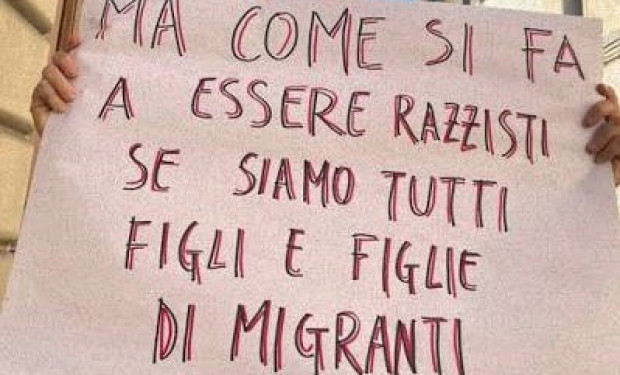 MA COME SI FA
A ESSERE RAZZISTI
SE SIAMO TUTTI
FIGLI E FIGLIE
DI MIGRANTI